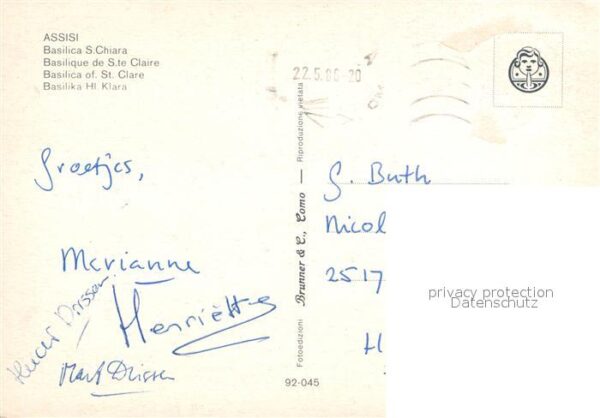 ASSISI
Basilica S.Chiara
Basilique de S.te Claire
Basilica of. St. Clare
Basilika Hl. Klara
22.5.86-20
Groetjes,
Marianne
Henriëtte
Mark Drissen
Drissen
Fotoedizioni Brunner & C., Como — Riproduzione vietata
92-045
G. Buth
Nicol
2517
H
privacy protection
Datenschutz